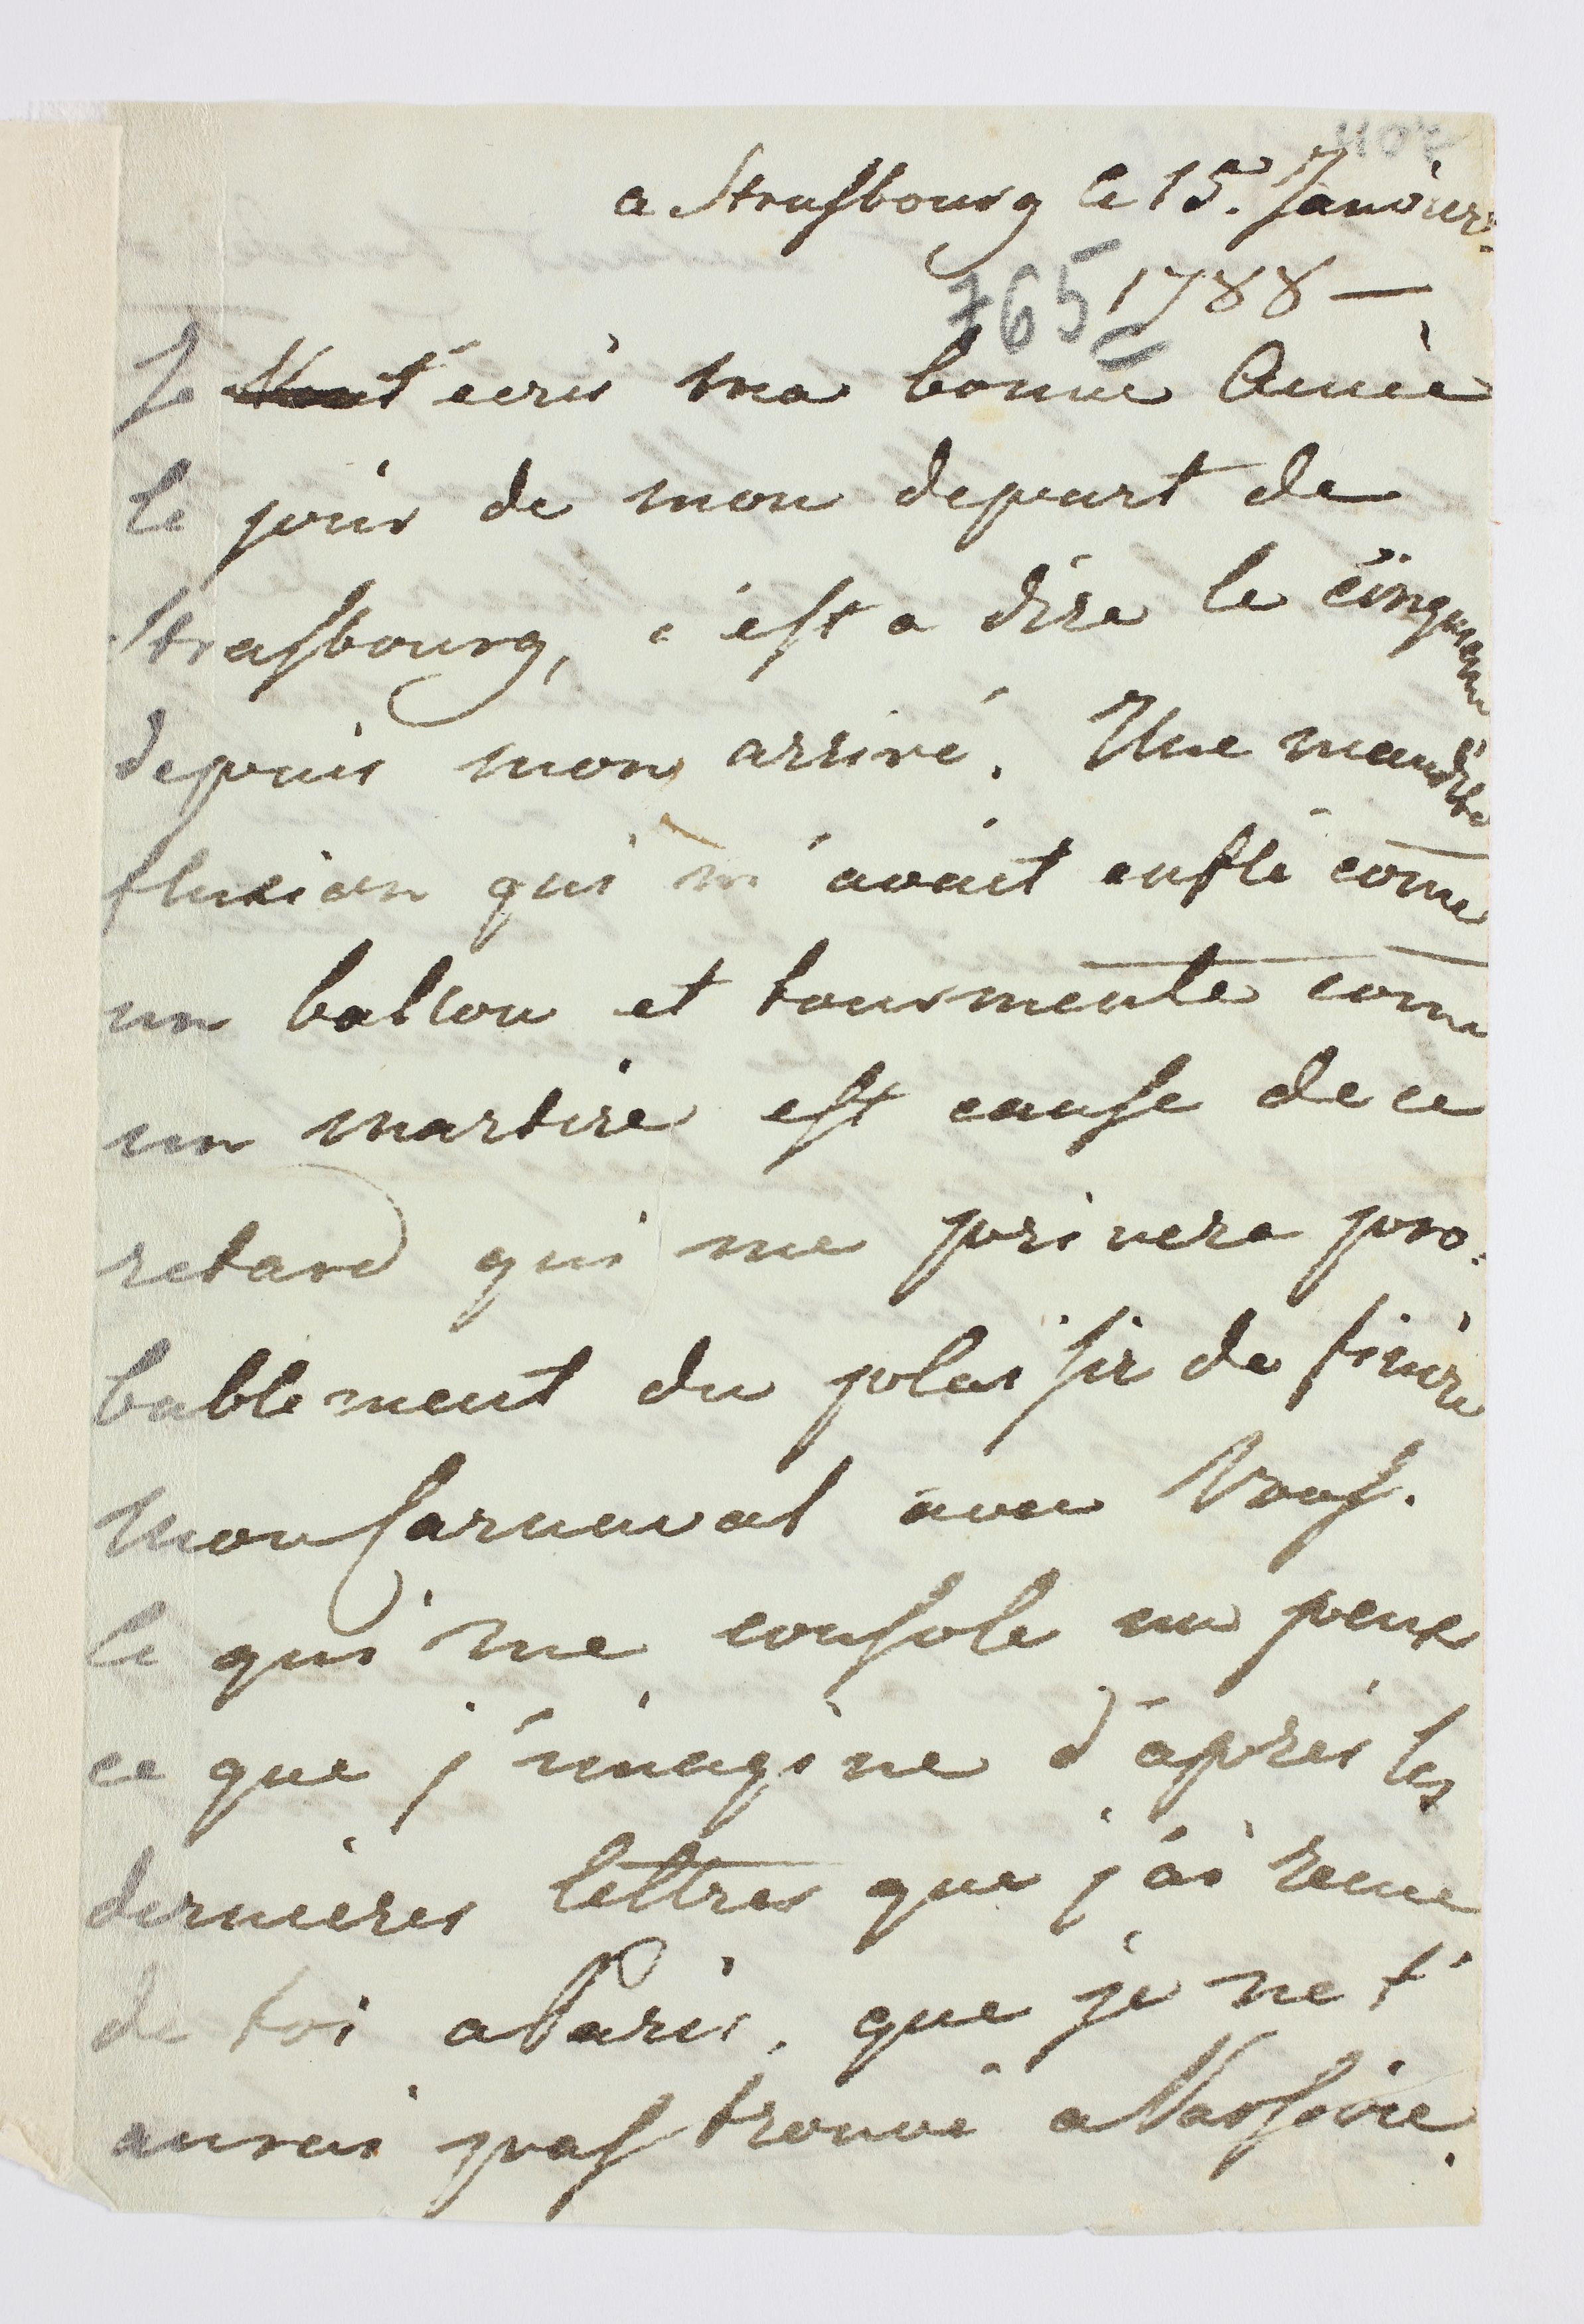 a Strasbourg le 15. Janvier
765 1788 —
Je t'ecris ma bonne Amie
le jour de mon depart de
Strasbourg, c'est a dire le cinquieme
depuis mon arrivé. Une maudite
fluxion qui m'avait enflé come
un ballon et tourmenté come
un martire est cause de ce
retard qui me privera pro-
bablement du plaisir de finire
mon Carnaval avec Vous.
Ce qui me console un peux
ce que j'imagine d'aprés les
dernieres lettres que j'ai recue
de toi a Paris, que je ne t'
aurai pas trouvé a Varsovie.